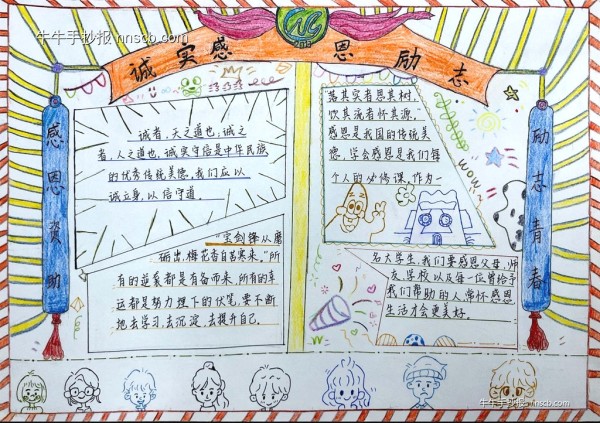 牛牛手抄报 nnscb.com
诚实感恩励志
感恩资助
励志青春
诚者，天之道也；诚之
者，人之道也，诚实守信是中华民族
的优秀传统美德，我们应以
诚立身，以信守道。
"宝剑锋从磨
砺出，梅花香自苦寒来。"所
有的逆袭都是有备而来，所有的幸
运都是努力埋下的伏笔，要不断
地去学习，去沉淀，去提升自己。
落其实者思其树，
饮其流者怀其源，
感恩是我国的传统美
德，学会感恩是我们每
个人的必修课，作为一
WOW
名大学生，我们要感恩父母，师
友，学校以及每一位曾给予
我们帮助的人，常怀感恩
生活才会更美好。
牛牛手抄报 nnscb.com